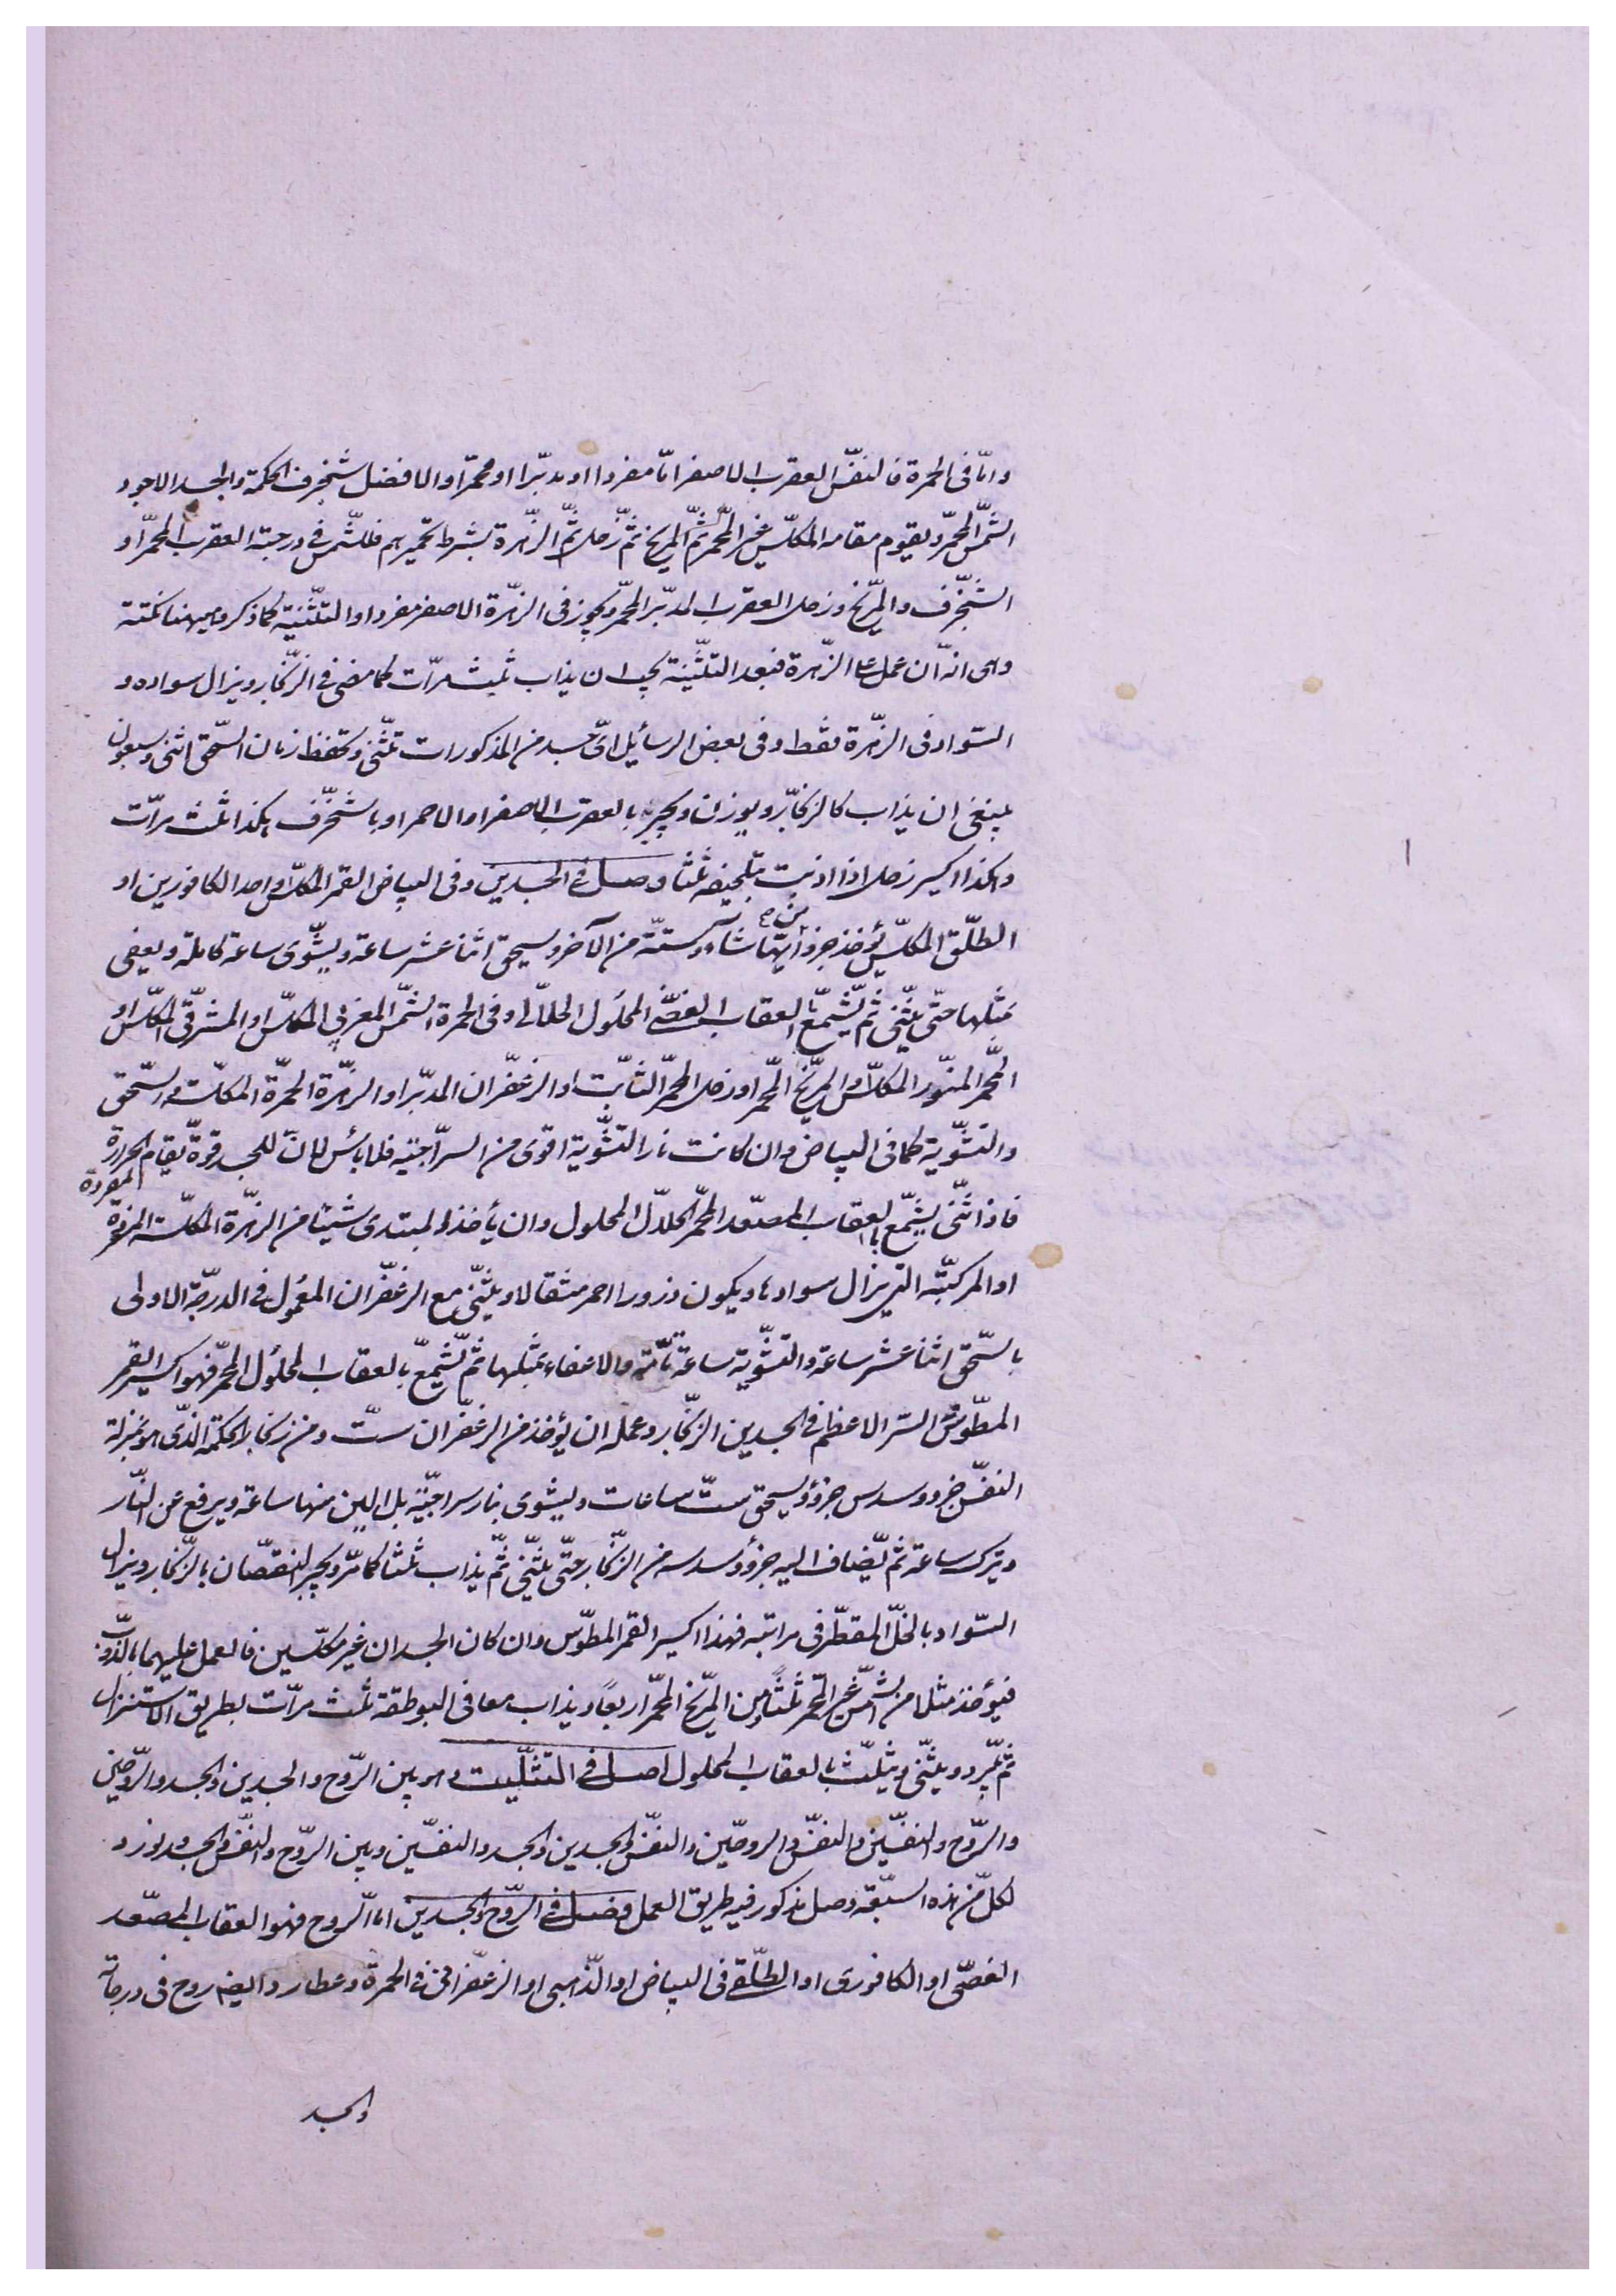 وامّا فى الحمرة فالنفس العقرب الاصفر امّا مفردا او مدبّرا او محمّرا والافضل شنجرف الحكمة والجسد الاجود
الشمس المحمّر ويقوم مقامه المكلّس غير المحمّر ثمّ المريخ ثمّ زحل ثمّ الزهرة بشرط تحميرهم فللشمس فى درجته العقرب المحمّر او
الشنجرف والمرّيخ وزحل العقرب المدبّر المحمّر ويجوز فى الزهرة الاصفر مفردا والتثنية كما ذكر وههنا نكتة
وهى انه ان عمل على الزهرة فبعد التثنية يجب ان يذاب ثلث مرّات كما مضى فى الزنجار ويزال سواده و
السّواد فى الزهرة فقط وفى بعض الرسائل اىّ جسد من المذكورات تثنّى وتحفظ زمان السحق اثنى وسبعون
ينبغى ان يذاب كالزنجار ويوزن ويجبر بالعقرب الاصفر او الاحمر او بالشنجرف هكذا ثلث مرّات
وهكذا اكسير زحل اذا اذيب بتلجيفه ثلثا وصل فى الجسدين وفى البياض القمر المكلّس واحد الكافورين او
الطلق المكلّس يؤخذ جزؤ من ايّهما شاء وستّة من الآخر ويسحق اثنا عشر ساعة ويشوّى ساعة كاملة ويعفى
مثلها حتى يثنّى ثمّ يشمّع بالعقاب الفضّى المحلول الحلّال وفى الحمرة الشمس المغربى المكلّس او المشرقى المكلّس او
المحمّر المنوّر المكلّس او المريخ المحمّر او زحل المحمّر الثابت او الزعفران المدبّر او الزهرة المحمّرة المكلّسة والسحق
والتشوية كما فى البياض وان كانت نار التشوية اقوى من السراجية فلا بأس لان للجسد قوّة يقام الحرارة
فاذا ثنّى يشمّع بالعقاب المصعّد المحمّر الحلّال المحلول وان يأخذ المبتدى شيئا من الزهرة المكلّسة المفردة
او المركبة التى يزال سوادها ويكون ذرورا احمر مثقالا ويثنّى مع الزعفران المعمول فى الدرجة الاولى
بالسحق اثنا عشر ساعة والتشوية ساعة تامّة والاعفاء بمثلها ثمّ يشمّع بالعقاب المحلول المحمّر فهو اكسير القمر
المطوّس السرّ الاعظم فى الجسدين الزنجار وعمله ان يؤخذ من الزعفران ستّ ومن زنجار الحكمة الذى هو بمنزلة
النفس جزو وسدس جزؤ ويسحق ستّ ساعات ويشوى بنار سراجيّة بل الين منها ساعة ويرفع عن النّار
ويترك ساعة ثم يضاف اليه جزؤ وسدسه من الزنجار حتّى يثنّى ثمّ يذاب ثلثا كما مرّ ويجبر النقصان بالزنجار ويزال
السّواد بالخلّ المقطّر فى مراتبه فهذا اكسير القمر المطوّس وان كان الجسدان غير مكلّسين فالعمل عليهما بالذوب
فيؤخذ مثلا من الشمس غير المحمّر ثلثا ومن المريخ المحمّر اربعا ويذاب معا فى البوطقة ثلث مرّات بطريق الاستنزال
ثمّ يبرد ويثنّى ويثلّث بالعقاب المحلول اصل فى التثليث وهو بين الرّوح والجسدين والجسد والرّوحين
والرّوح والنفسين والنفس والروحين والنفس والجسدين والجسد والنفسين وبين الرّوح والنفس والجسد ونورد
لكلّ من هذه السبعة وصل مذكور فيه طريق العمل وصل فى الرّوح والجسدين امّا الرّوح فهو العقاب المصعّد
الفضّى او الكافورى او الطلقى فى البياض او الذهبى او الزعفرانى فى الحمرة وعطارد ايضا روح فى درجاته
والجسد